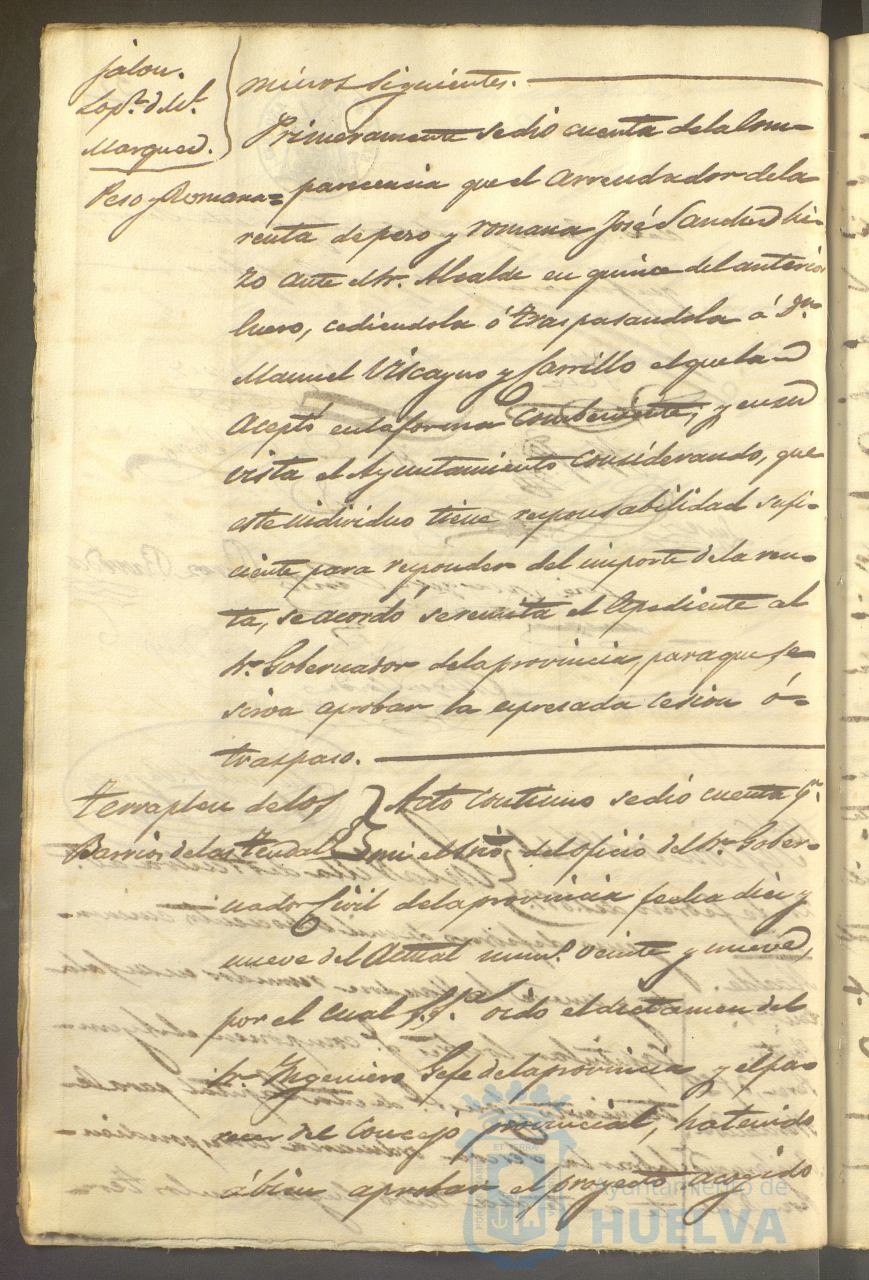 Jalon.
Lopz. d Ml.
Marquez.
minos Siguientes.
Peso y Romana=
Primeramente se dio cuenta de la Com-
parecencia que el arrendador de la
renta de peso y romana José Sanchez hi-
zo ante el Sr. Alcalde en quince del anterior
Enero, cediendola ó traspasandola á Dn.
Manuel Viscayno y Carrillo el que la
Aceptó en la forma Combeniente, y en su
vista el Ayuntamiento Considerando, que
este individuo tiene responsabilidad sufi-
ciente para reponder del importe de la ren-
ta, se acordó se remita el Espediente al
Sr. Gobernador de la provincia, para que se
sirva aprobar la espresada Cesion ó=
traspaso.
terraplen de los
Barrios de las Tendal
Acto Continuo se dió cuenta pr.
mi el Srio. del oficio del Sr. Gober-
nador Civil de la provincia fecha diez y
nueve del Actual num.o veinte y nueve,
por el cual S.S.a oido el dictamen del
Sr. Ingeniero Gefe de la provincia y el pa-
recer del Concejo provincial, ha tenido
á bien aprobar el proyecto
Ayuntamiento de
HUELVA